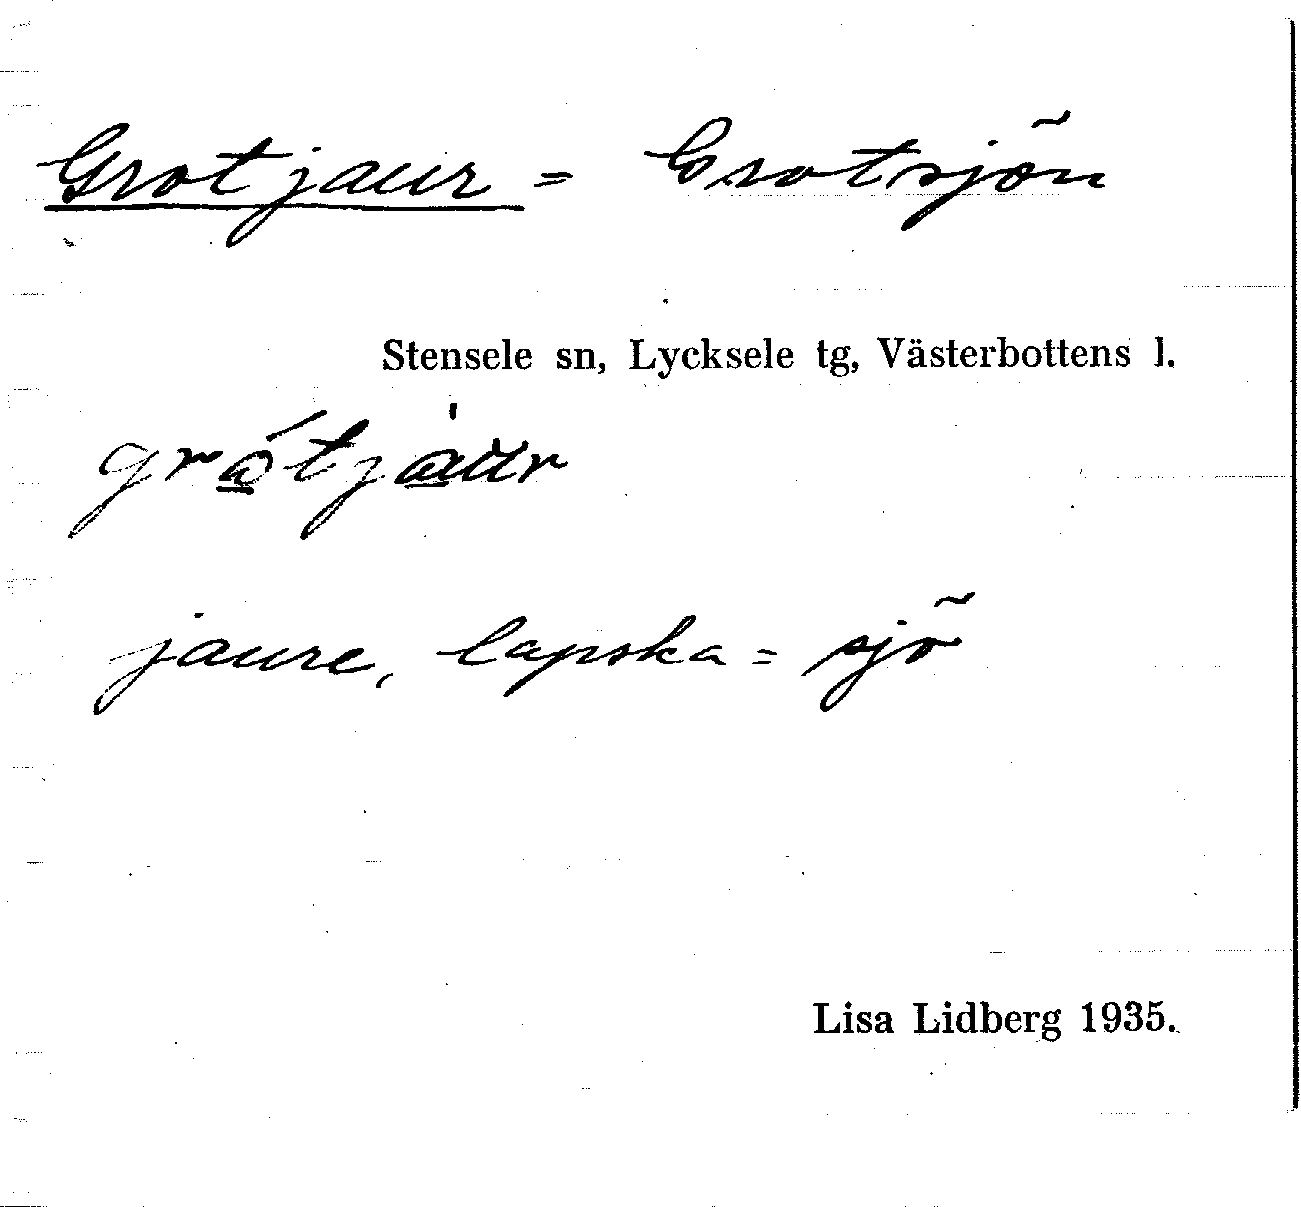 Grotjaur = Grotsjön
Stensele sn, Lycksele tg, Västerbottens l.
jaure, lapska = sjö
Lisa Lidberg 1935.